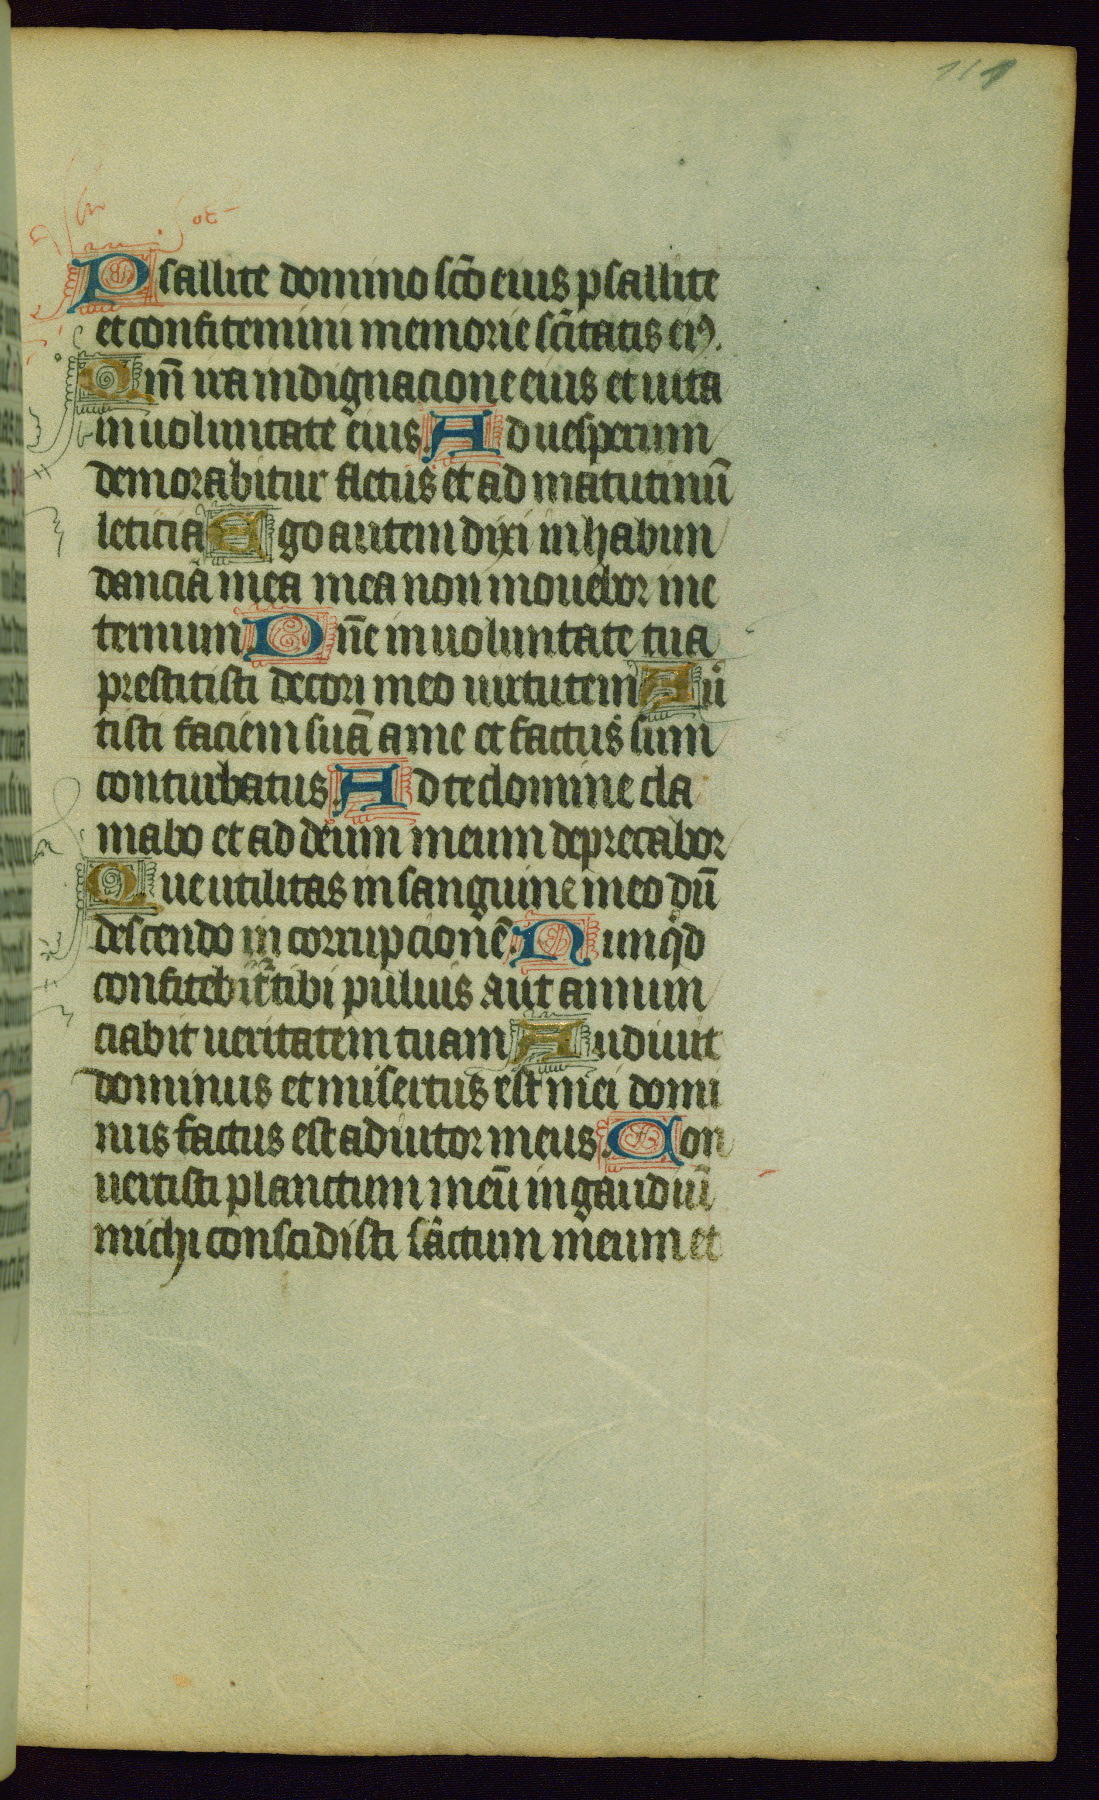 111
Psallite domino sc̄o eius psallite
et confitemini memorie sc̄itatis ei9.
Qm̄ ira indignacione eius et uita
in uoluntate eius. Ad uesperum
demorabitur fletus et ad matutinū
leticia Ego autem dixi in habun
dancia mea mea non mouebor in e
ternum Dn̄e in uoluntate tua
prestitisti decori meo uirtutem Auer
tisti faciem tuā a me et factus sum
conturbatus. Ad te domine cla
mabo et ad deum meum deprecabor
Que utilitas in sanguine meo dū
descendo in corrupcionē. Nunqid
confitebitur tibi puluis aut annun
ciabit ueritatem tuam Audiuit
dominus et misertus est mei domi
nus factus est adiutor meus. Con
uertisti planctum meū in gaudiū
michi conscidisti sactum meum et